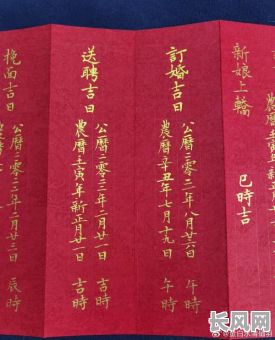 新娘上轎
巳時吉
訂婚吉日
公曆二零二一年八月廿六日 午時
農曆辛丑年七月十九日 午時
送聘吉日
公曆二零二二年二月廿一日 吉時
農曆壬寅年新正月廿一日 吉時
挽面吉日
公曆二零二二年二月廿三日 辰時
长风网